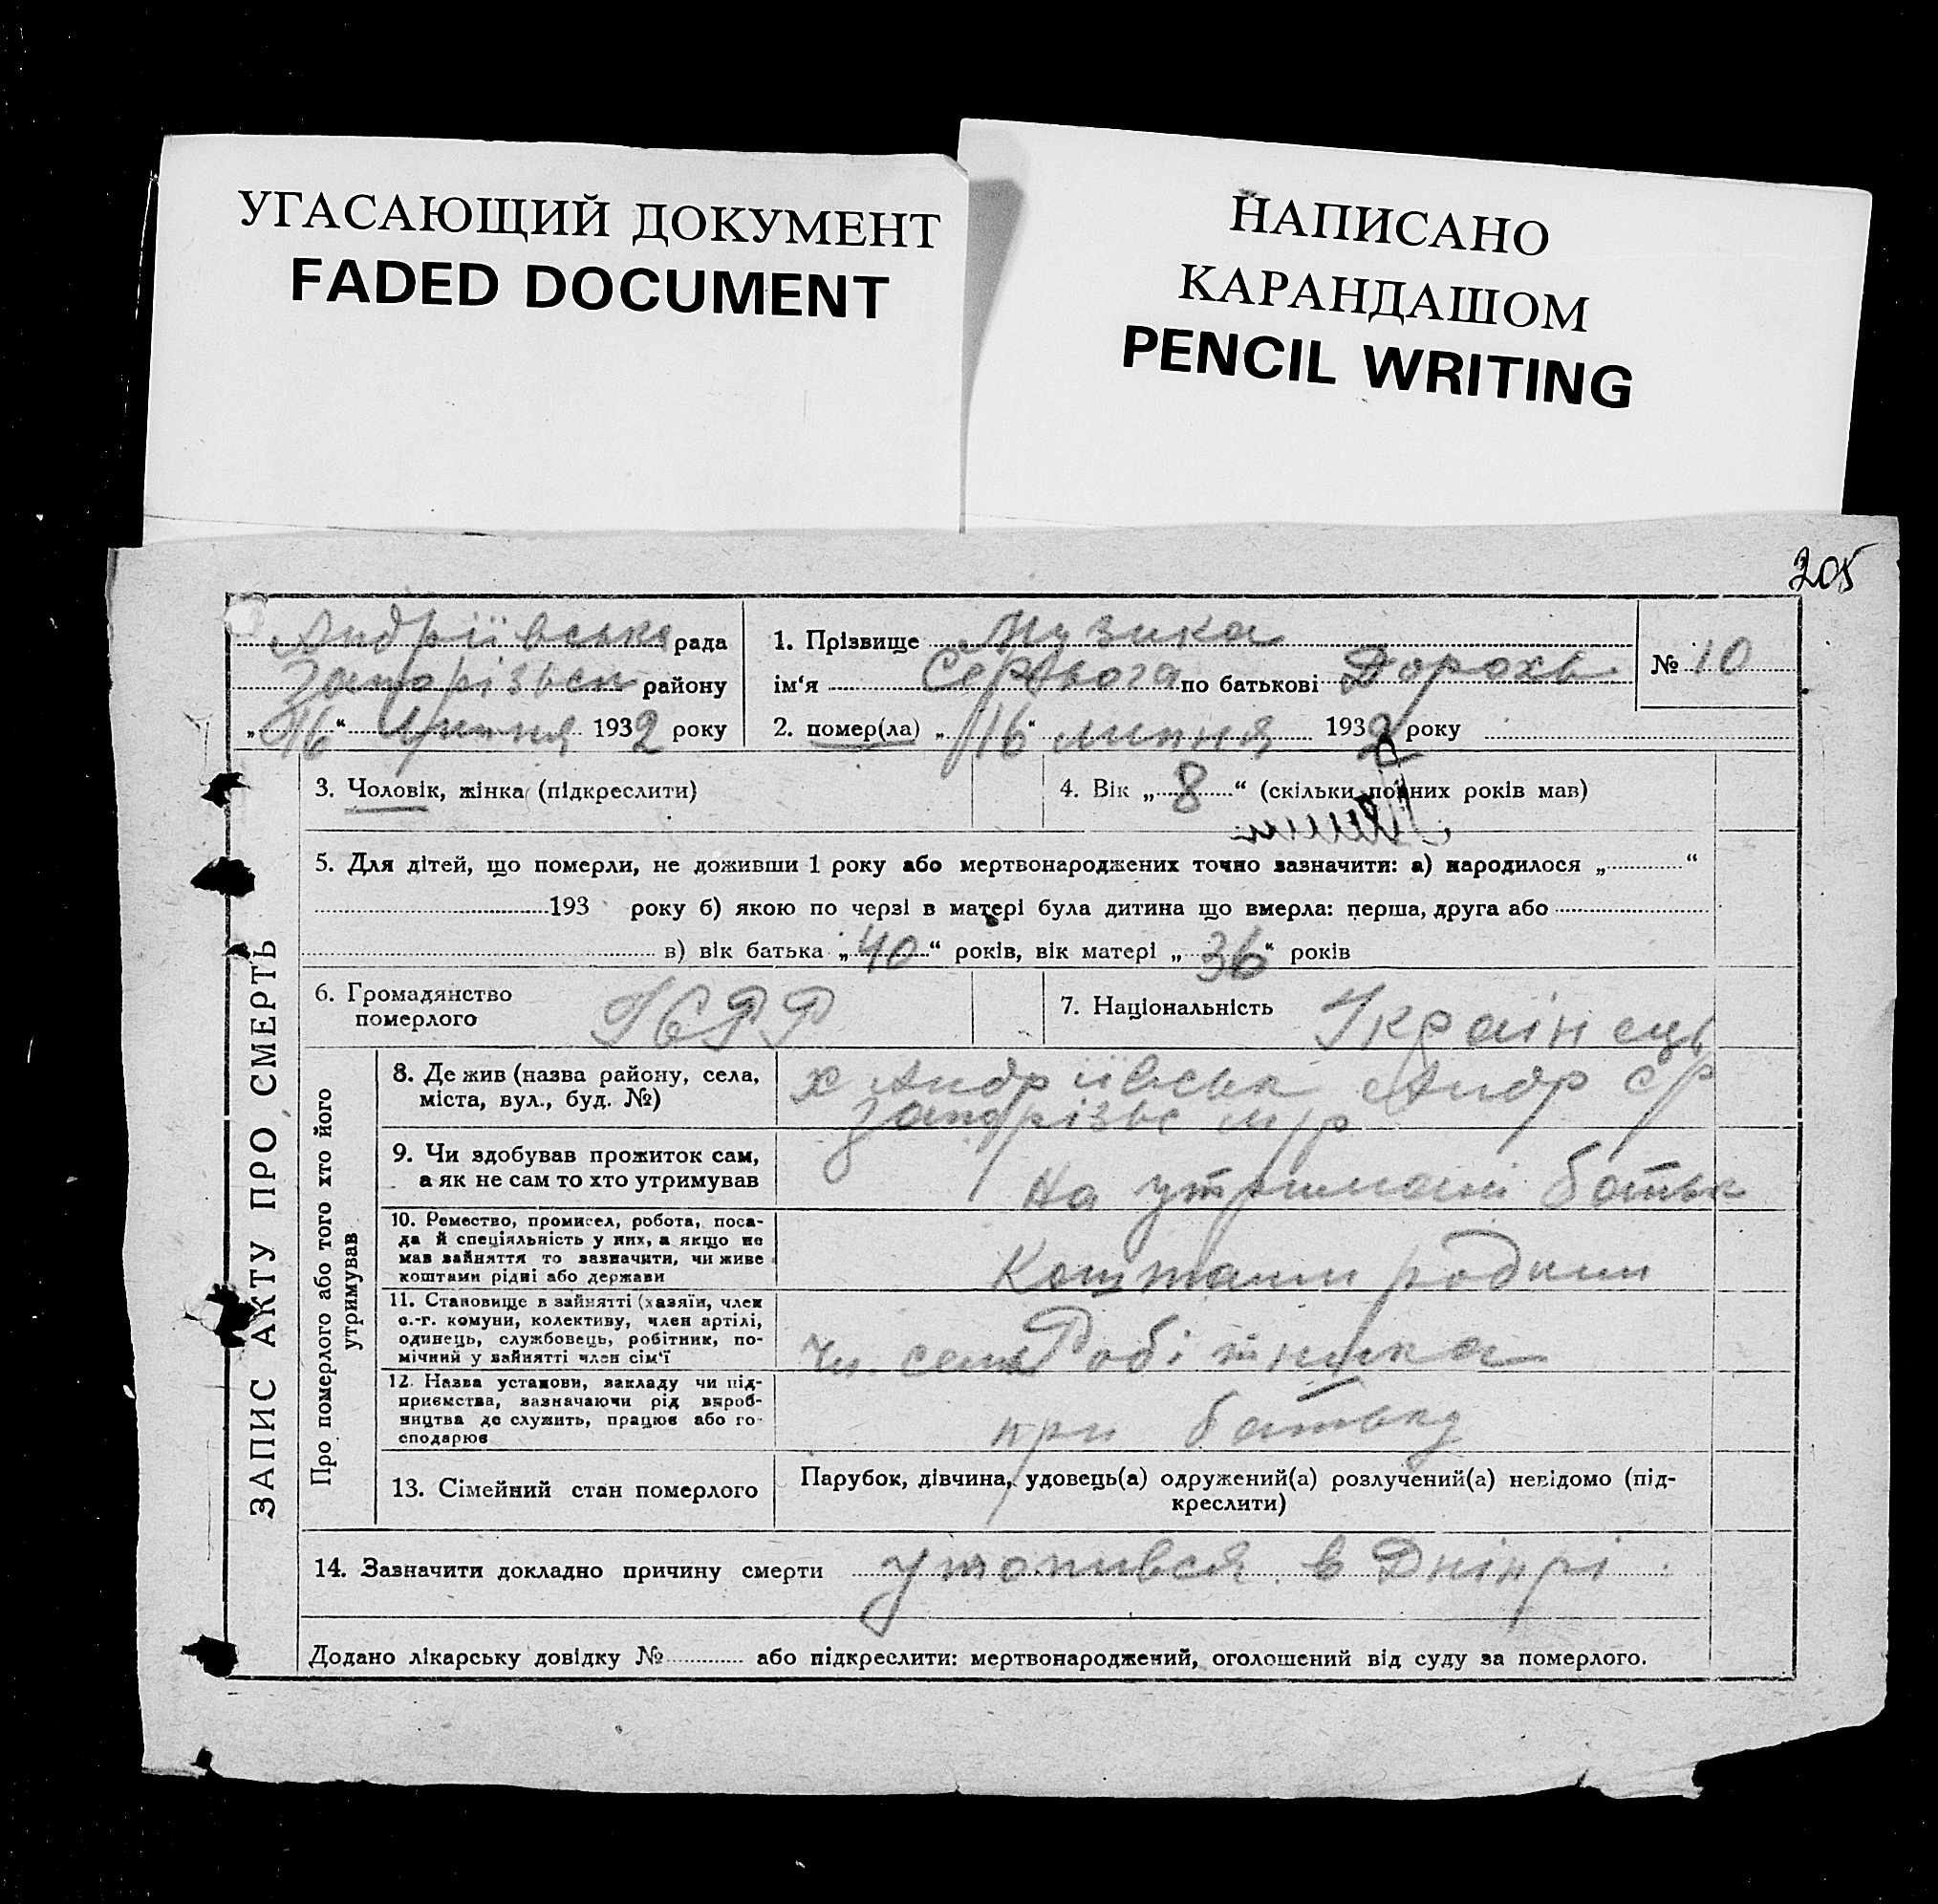 УГАСАЮЩИЙ ДОКУМЕНТ
FADED DOCUMENT
НАПИСАНО
КАРАНДАШОМ
PENCIL WRITING
205
Андріївська рада
район у
„16“ 1932 року
1. Прізвище Музика
ім‘я по батькові Дорохв.
2. помер(ла) „16“ липня 1932 року
№ 10
3. Чоловік, жінка (підкреслити)
4. Вік „8“ (скільки повних років мав)
5. Для дітей, що померли, не доживши 1 року або мертвонароджених точно зазначити: а) народилося „ “
193 року б) якою по черзі в матері була дитина що вмерла: перша, друга або
в) вік батька „40“ років, вік матері „36“ років
6. Громадянство
померлого
УСРР
7. Національність Українець
ЗАПИС АКТУ ПРО СМЕРТЬ
Про померлого або того хто його
утримував
8. Де жив (назва району, села,
міста, вул., буд. №)
х Андріївськ Андр с/р
м/р
9. Чи здобував прожиток сам,
а як не сам то хто утримував
На утримані батьк
10. Ремество, промисел, робота, поса-
да й спеціяльність у них, а якщо не
мав зайняття то зазначити, чи живе
коштами рідні або держави
Коштами родини
11. Становище в зайнятті (хазяїн, член
с.-г. комуни, колективу, член артілі,
одинець, службовець, робітник, по-
мічний у зайнятті член сім‘ї
Чл. сем Робітника
12. Назва установи, закладу чи під-
приємства, зазначаючи рід вироб-
ництва де служить, працює або го-
сподарює
при батьку
13. Сімейний стан померлого
Парубок, дівчина, удовець(а) одружений(а) розлучений(а) невідомо (під-
креслити)
14. Зазначити докладно причину смерти утопився в Дніпрі.
Додано лікарську довідку № або підкреслити: мертвонароджений, оголошений від суду за померлого.